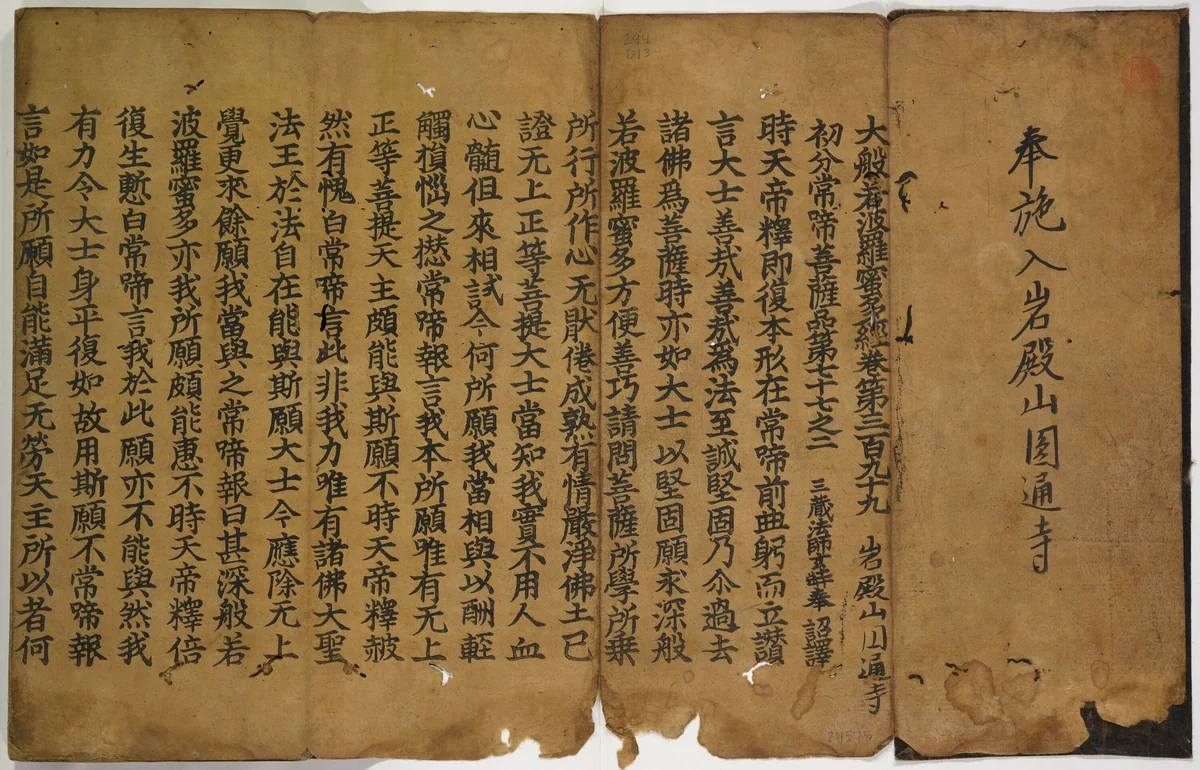 奉施入岩殿山圓通寺
大般若波羅蜜多經卷第三百九十九 岩殿山圓通寺
初分常啼菩薩品第七十七之二 三藏法師玄奘奉 詔譯
時天帝釋即復本形在常啼前曲躬而立讃
言大士善哉善哉為法至誠堅固乃尒過去
諸佛爲菩薩時亦如大士以堅固願求深般
若波羅蜜多方便善巧請問菩薩所學所乗
所行所作心无猒倦成熟有情嚴淨佛土已
證无上正等菩提大士當知我實不用人血
心髓但來相試今何所願我當相與以酬輕
觸損惱之㣻常啼報言我本所願唯有无上
正等菩提天主頗能與斯願不時天帝釋赧
然有愧白常啼言此非我力唯有諸佛大聖
法王於法自在能與斯願大士今應除无上
覺更求餘願我當與之常啼報曰甚深般若
波羅蜜多亦我所願頗能惠不時天帝釋倍
復生慙白常啼言我於此願亦不能與然我
有力令大士身平復如故用斯願不常啼報
言如是所願自能滿足无勞天主所以者何
244
613
24575